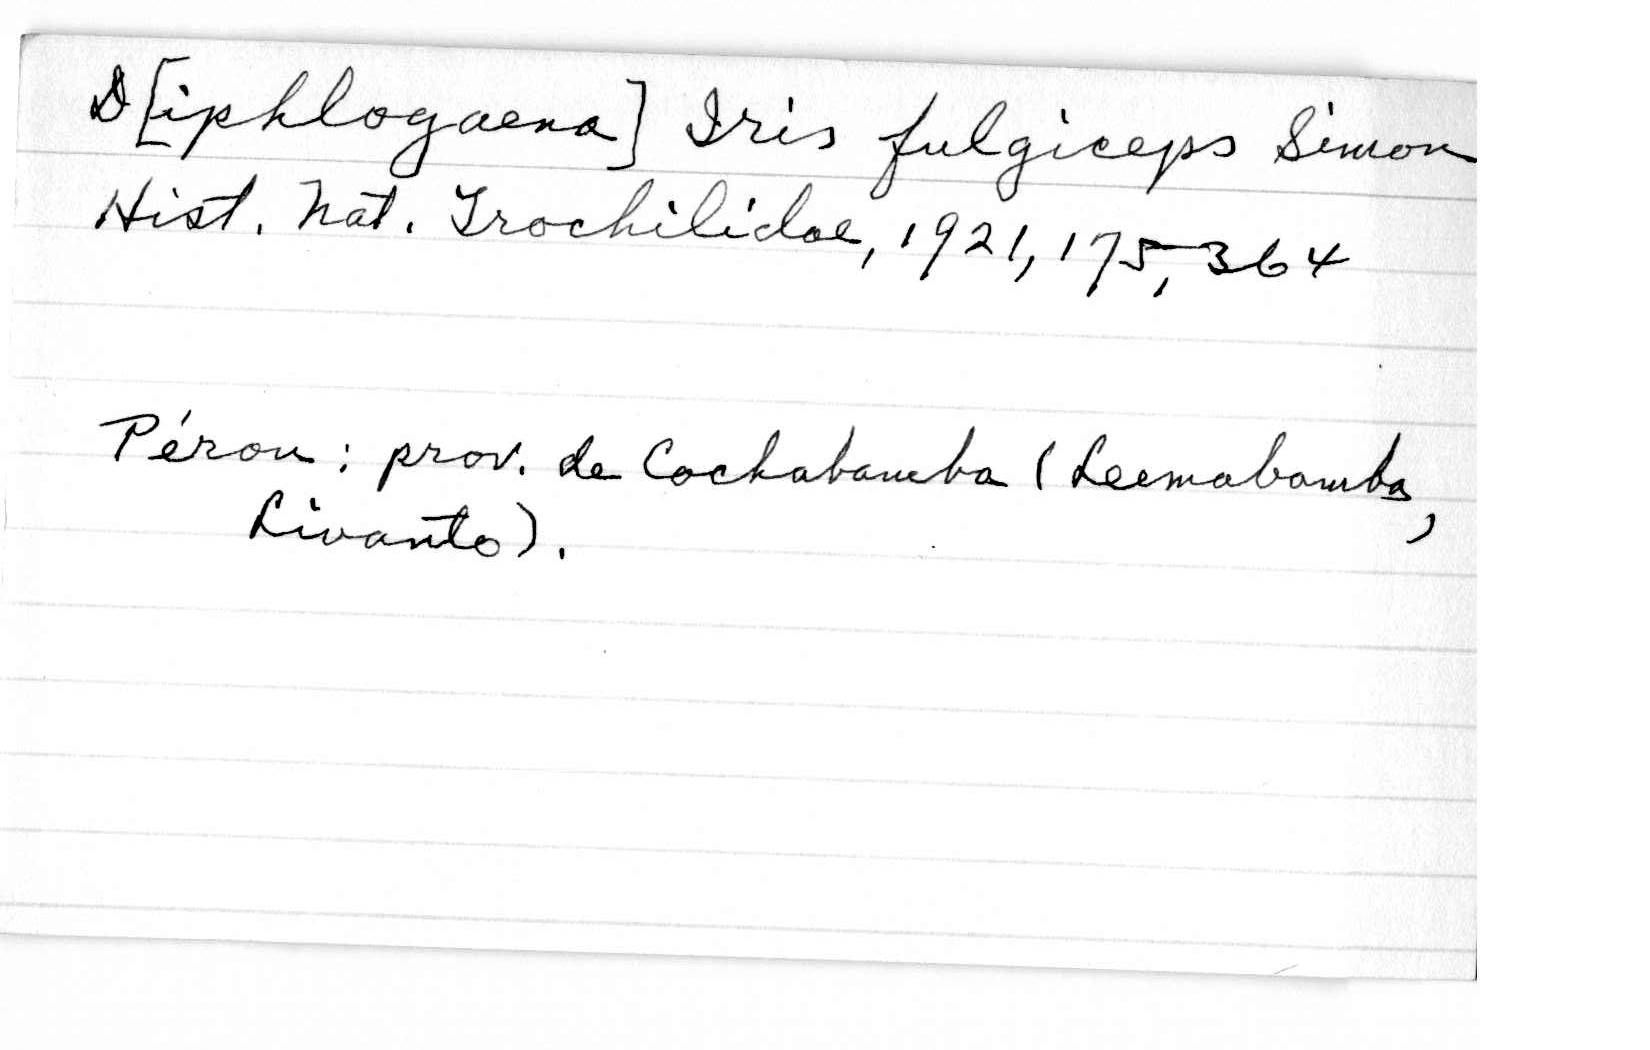 D[iphlogaena] Iris fulgiceps Simon
Hist. Nat. Trochilidae, 1921, 175, 364
Pérou : prov. de Cochabamba (Leemabamba,
Livanto).